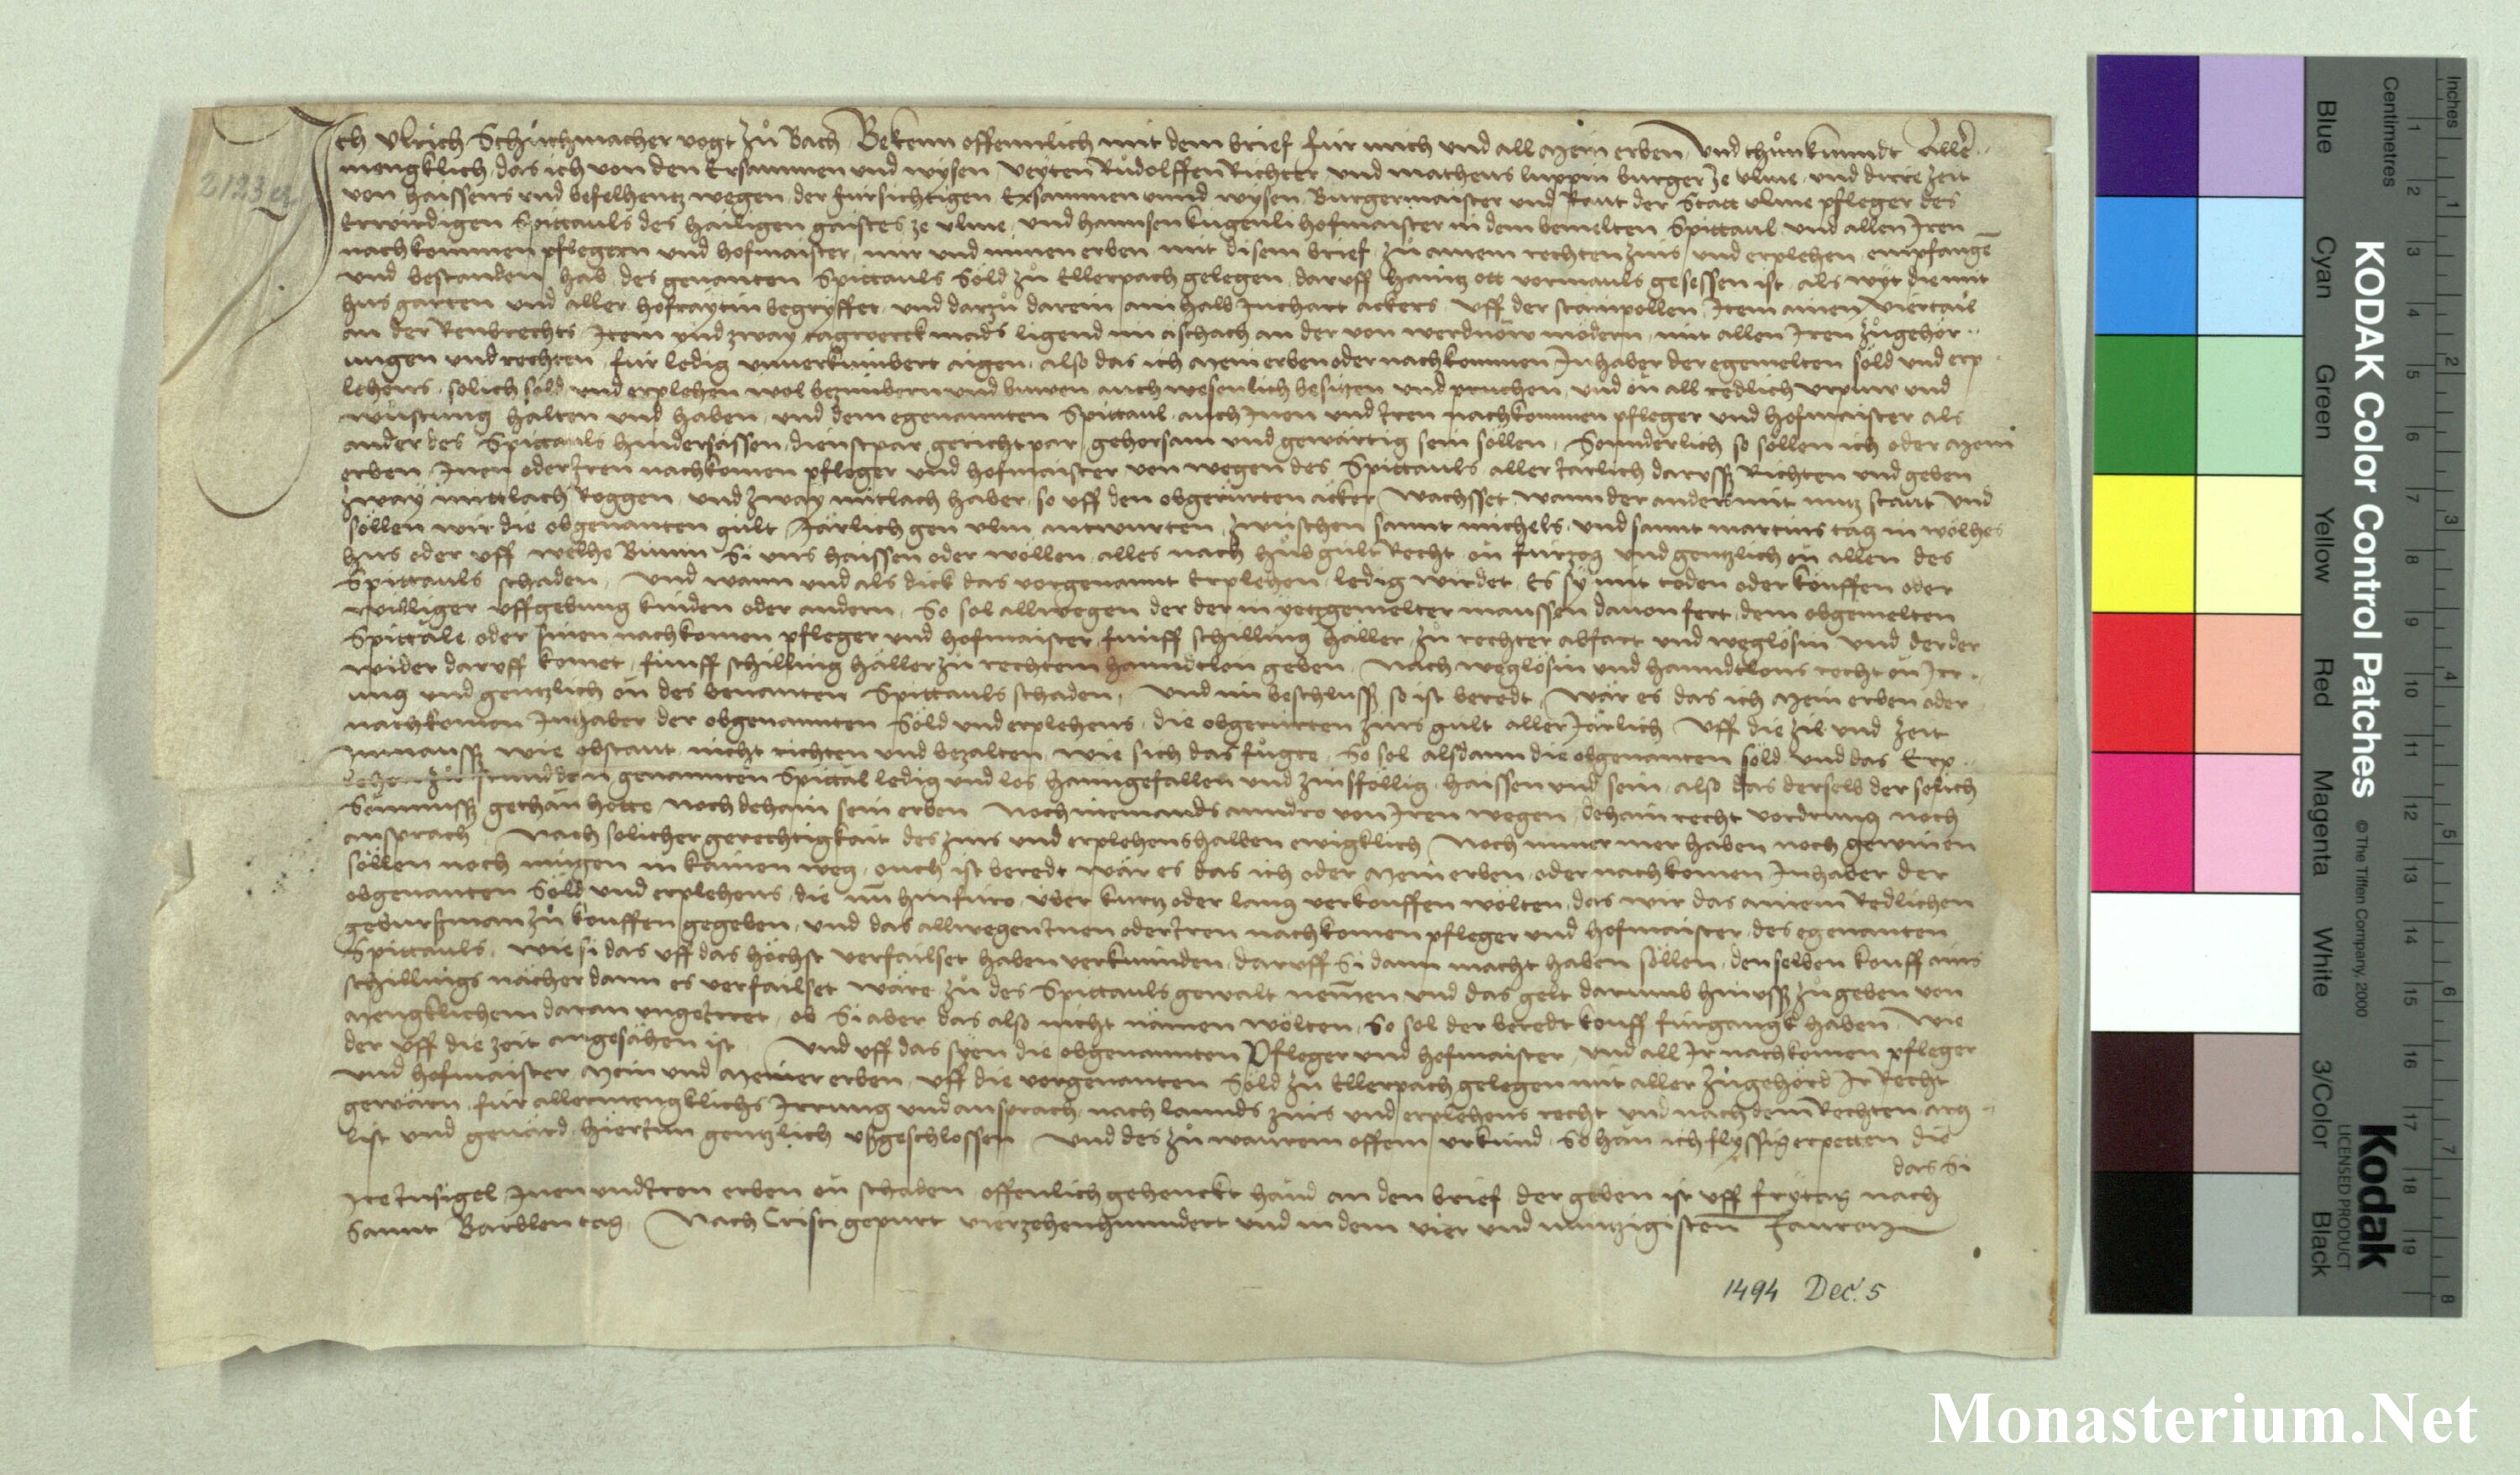 Ich Ulrich Schuchmacher vogt zů Bach Bekenn offennlich mit dem brief für mich und all mein erben und thůn kunndt Aller
mengklich das ich von den Ersammen und wysen Veyten Růdolffen Richter und Matheus luppin burger ze ulme und dirre zeit
von haissens und befelhentz wegen der fürsichtigen Ersammen unnd wysen Burgermaister und Raut der Statt ulme pfleger des
Erwirdigen Spittauls des hailigen gaistes ze ulme und hannsen hofmaister in dem bemelten Spittaul und allen Iren
nachkommen pflegern und hofmaister mir und minen erben mit disem brief zů ainem rechten zins und erplehen empfangen
und bestanden hab des genanten Spittauls Söld zů Ellerpach gelegen daruff haintz ott vormauls gesessen ist als wyt die mit
hus garten und aller hofraytin begryffet und darzů darein ain halb Juchart ackers uff der Item ainen viertail
an der Item und zway tagwerck mads ligend im aschach an der von werdnow mödern mit allen Iren zůgehör
ungen und rechten für ledig unverkümbert aigen also das ich mein erben oder nachkommen Inhaber der egemelten söld und erp
lehens solich söld und erplehen wol bezimbern und buwen auch wesenlich besitzen und pruchen und on all redlich urpuw und
wüstung halten und haben und dem egenannten Spittaul auch Inen und Iren nachkommen pfleger und hofmaister als
ander des Spittauls hindersässen dienstpar gerichtpar gehorsam und gewärtig sein söllen Sonnderlich so söllen ich oder mein
erben Inen oder Iren nachkomen pfleger und hofmaister von wegen des Spittauls aller Järlich darusß Richten und geben
zway mittlach Roggen und zway mitlach haber so uff den obgerürten äcker wachsset wann der anders mit nutz staut und
söllen wir die obgenanten gült Järlich gen ulm antwurten zwüschen sannt michels und sannt martins tag in wölhes
hus oder uff welhe Binin Si uns haissen oder wöllen alles nach hůb gült Recht on fürzog und gentzlich on allen des
Spittauls schaden Und wann und als dick das vorgenannt Erplehen ledig wirdet Es sy mit toden oder kouffen oder
williger uffgebung kinden oder andern So sol allwegen der der in yetzgemelter maussen davon fert dem obgemelten
Spittale oder sinen nachkomen pfleger und hofmaister fünff schilling haller zů rechter abfart und weglösin und der der
wider daruff komet fünff schilling haller zů rechtem hanndtlon geben Nach weglösin und hanndtlons recht on Irr
ung und gentzlich on des benanten Spittauls schaden Und im beschlusß so ist beredt Wär es das ich mein erben oder
nachkomen Inhaber der obgenannten Söld und erplehens die obgerürten zins gült aller Järlich uff die zil und zeit
Inmausß wie obstaut nicht richten und bezalten wie sich das fůgte So sol alsdann die obgenanten söld und das Erp
lehen zů stund den genannten Spittal ledig und los haimgefallen und zinsfellig haissen und sein also das derselb der solich
Somnusß gethan hette noch dehain sein erben Noch niemands anndro von Iren wegen dehain recht vordrung noch
ansprach Nach solicher gerechtigkait des zins und erplehens halben ewigklich Noch nimer mer haben noch gewinen
söllen noch mügen in kainen weg ouch ist beredt wär es das ich oder mein erben oder nachkomen Inhaber der
obgenanten Söld und erplehens die nun hinfüro über kurtz oder lang verkouffen wölten das wir das ainem Redlichen
gebursman zů kouffen gegeben und das allwegen Inen oder Iren nachkomen pfleger und hofmaister des egenanten
Spittauls wie si das uff das höchst verfailset haben verkünden daruff Si dann macht haben söllen denselben kouff ains
schillings nächer dann es verfailset wäre zů des Spittauls gewalt nemen und das gelt darumb hinusß zů geben von
mengklichem daran ungeirret ob Si aber das also nicht nämen wölten So sol der beredt kouff fürgangk haben wie
der uff die zeit angesähen ist Und uff das syen die obgenannten Pfleger und hofmaister und all Ir nachkomen pfleger
und hofmaister mein und meiner erben uff die vorgenanten Söld zů Ellerpach gelegen mit aller zůgehörd Ir Recht
gewärn für allermengklichs Irrung und ansprach nach lannds zins und erplehens recht und nach dem Rechten arg
list und gevärd hierInn gentzlich ußgeschlossen Und des zů waurem offem urkund So han ich flyssig erpetten die
das Si
Ire Insigel Inen und Iren erben on schaden offenlich gehenckt hand an den brief der geben ist uff frytag nach
Sannt Barblen tag Nach Cristi gepurt vierzehenhunndert und in dem vier und nüntzigisten Jauren
1494 Dec. 5
KODAK Color Control Patches
© The Tiffen Company, 2000
Kodak
LICENSED PRODUCT
Blue Cyan Green Yellow Red Magenta White 3/Color Black
Centimetres 1 2 3 4 5 6 7 8 9 10 11 12 13 14 15 16 17 18 19
Inches 1 2 3 4 5 6 7 8
Monasterium.Net